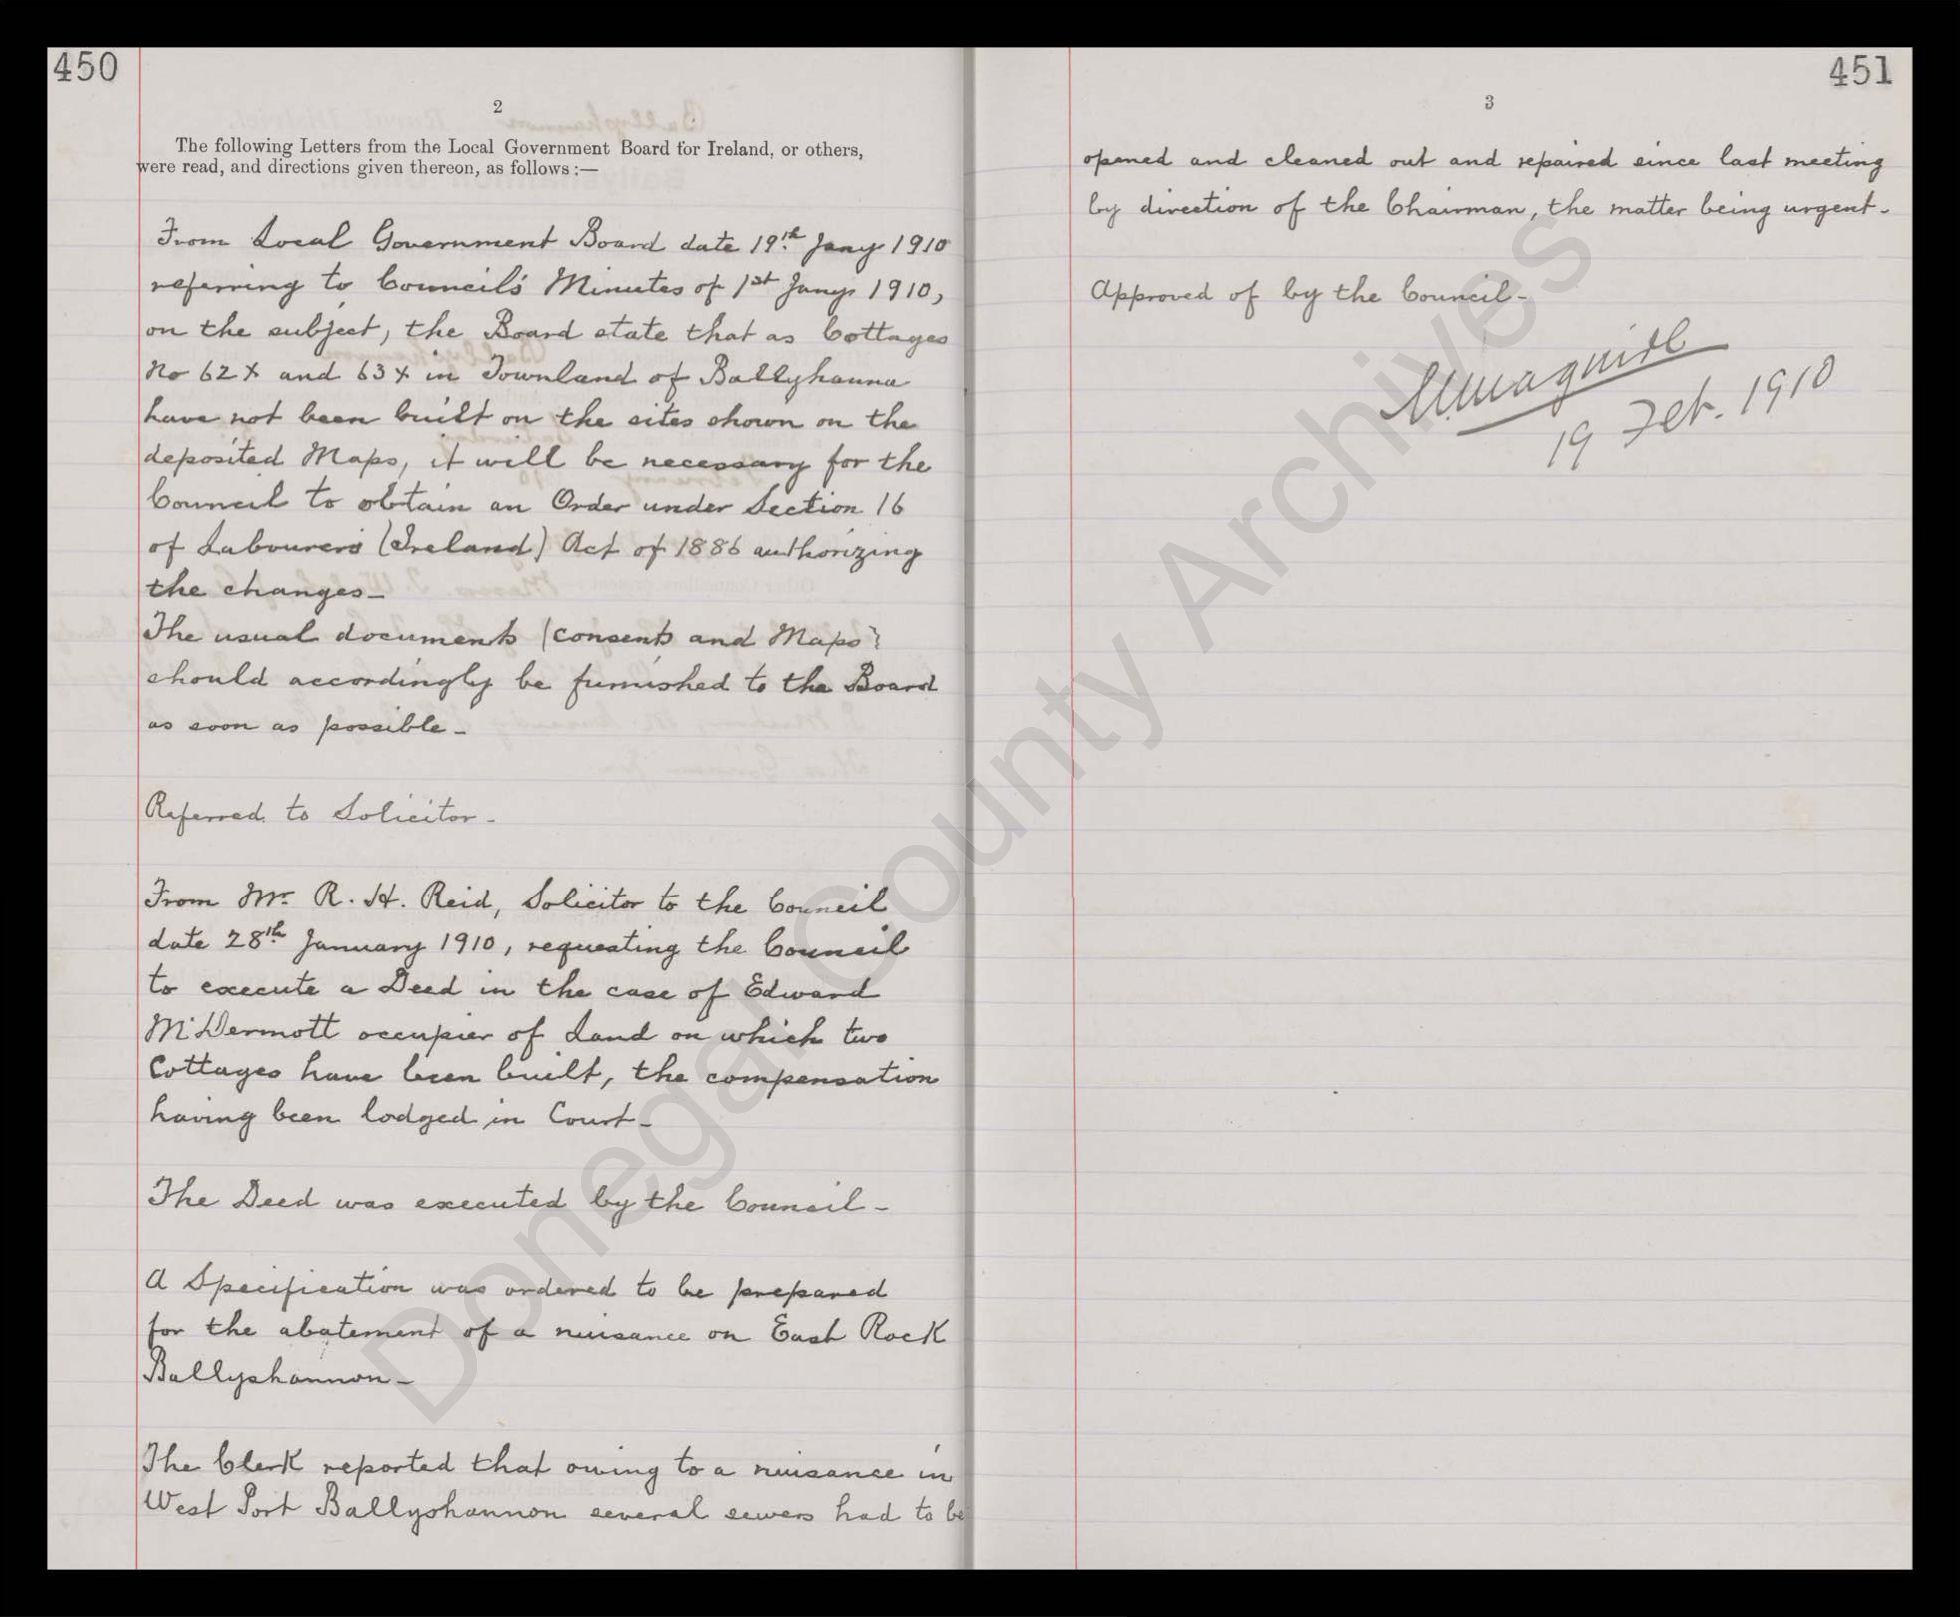 450
2
The following Letters from the Local Government Board for Ireland, or others,
were read, and directions given thereon, as follows :—
From Local Government Board date 19th Jany 1910
referring to Council's Minutes of 1st Jany 1910,
on the subject, the Board state that as Cottages
No 62X and 63X in Townland of Ballyhanna
have not been built on the sites shown on the
deposited Maps, it will be necessary for the
Council to obtain an Order under Section 16
of Labourers (Ireland) Act of 1886 authorizing
the changes_
The usual documents (consents and Maps)
should accordingly be furnished to the Board
as soon as possible_
Referred to Solicitor_
From Mr. R. H. Reid, Solicitor to the Council
date 28th January 1910, requesting the Council
to execute a Deed in the case of Edward
McDermott occupier of Land on which two
Cottages have been built, the compensation
having been lodged in Court_
The Deed was executed by the Council_
A Specification was ordered to be prepared
for the abatement of a nuisance on East Rock
Ballyshannon_
The Clerk reported that owing to a nuisance in
West Port Ballyshannon several sewers had to be
451
3
opened and cleaned out and repaired since last meeting
by direction of the Chairman, the matter being urgent_
Approved of by the Council_
Maguire
19 Feb. 1910
Donegal County Archives